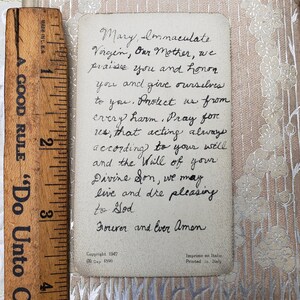 MADE IN U.S.A.
A GOOD RULE
"Do Unto O
1
2
3
4
Mary Immaculate
Virgin, Our Mother, we
praise you and honor
you and give ourselves
to you. Protect us from
every harm. Pray for
us, that acting always
according to your will
and the Will of your
Divine Son, we may
live and die pleasing
to God
Forever and Ever Amen
Copyright 1947
Impreso en Italia
Printed in Italy